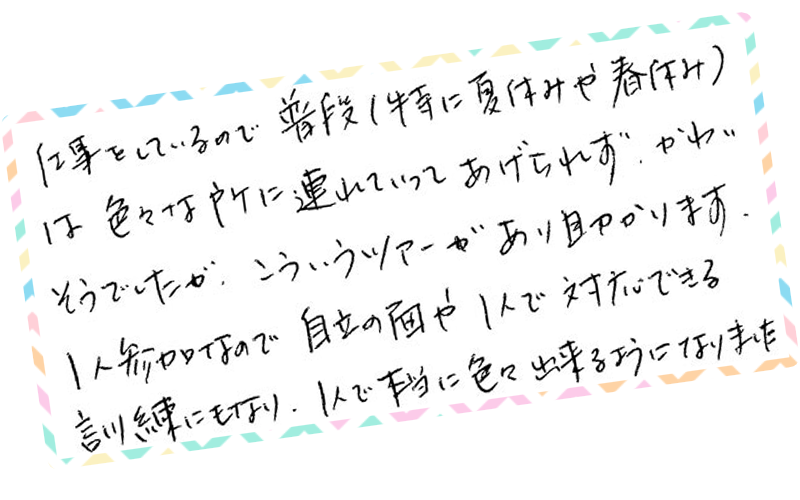 仕事をしているので 普段(特に夏休みや春休み)
は 色々な所に連れていって あげられず、かわい
そうでしたが、こういうツアーが あり助かります。
1人参加なので 自立の面や 1人で 対応できる
訓練にもなり、1人で本当に色々出来るようになりました